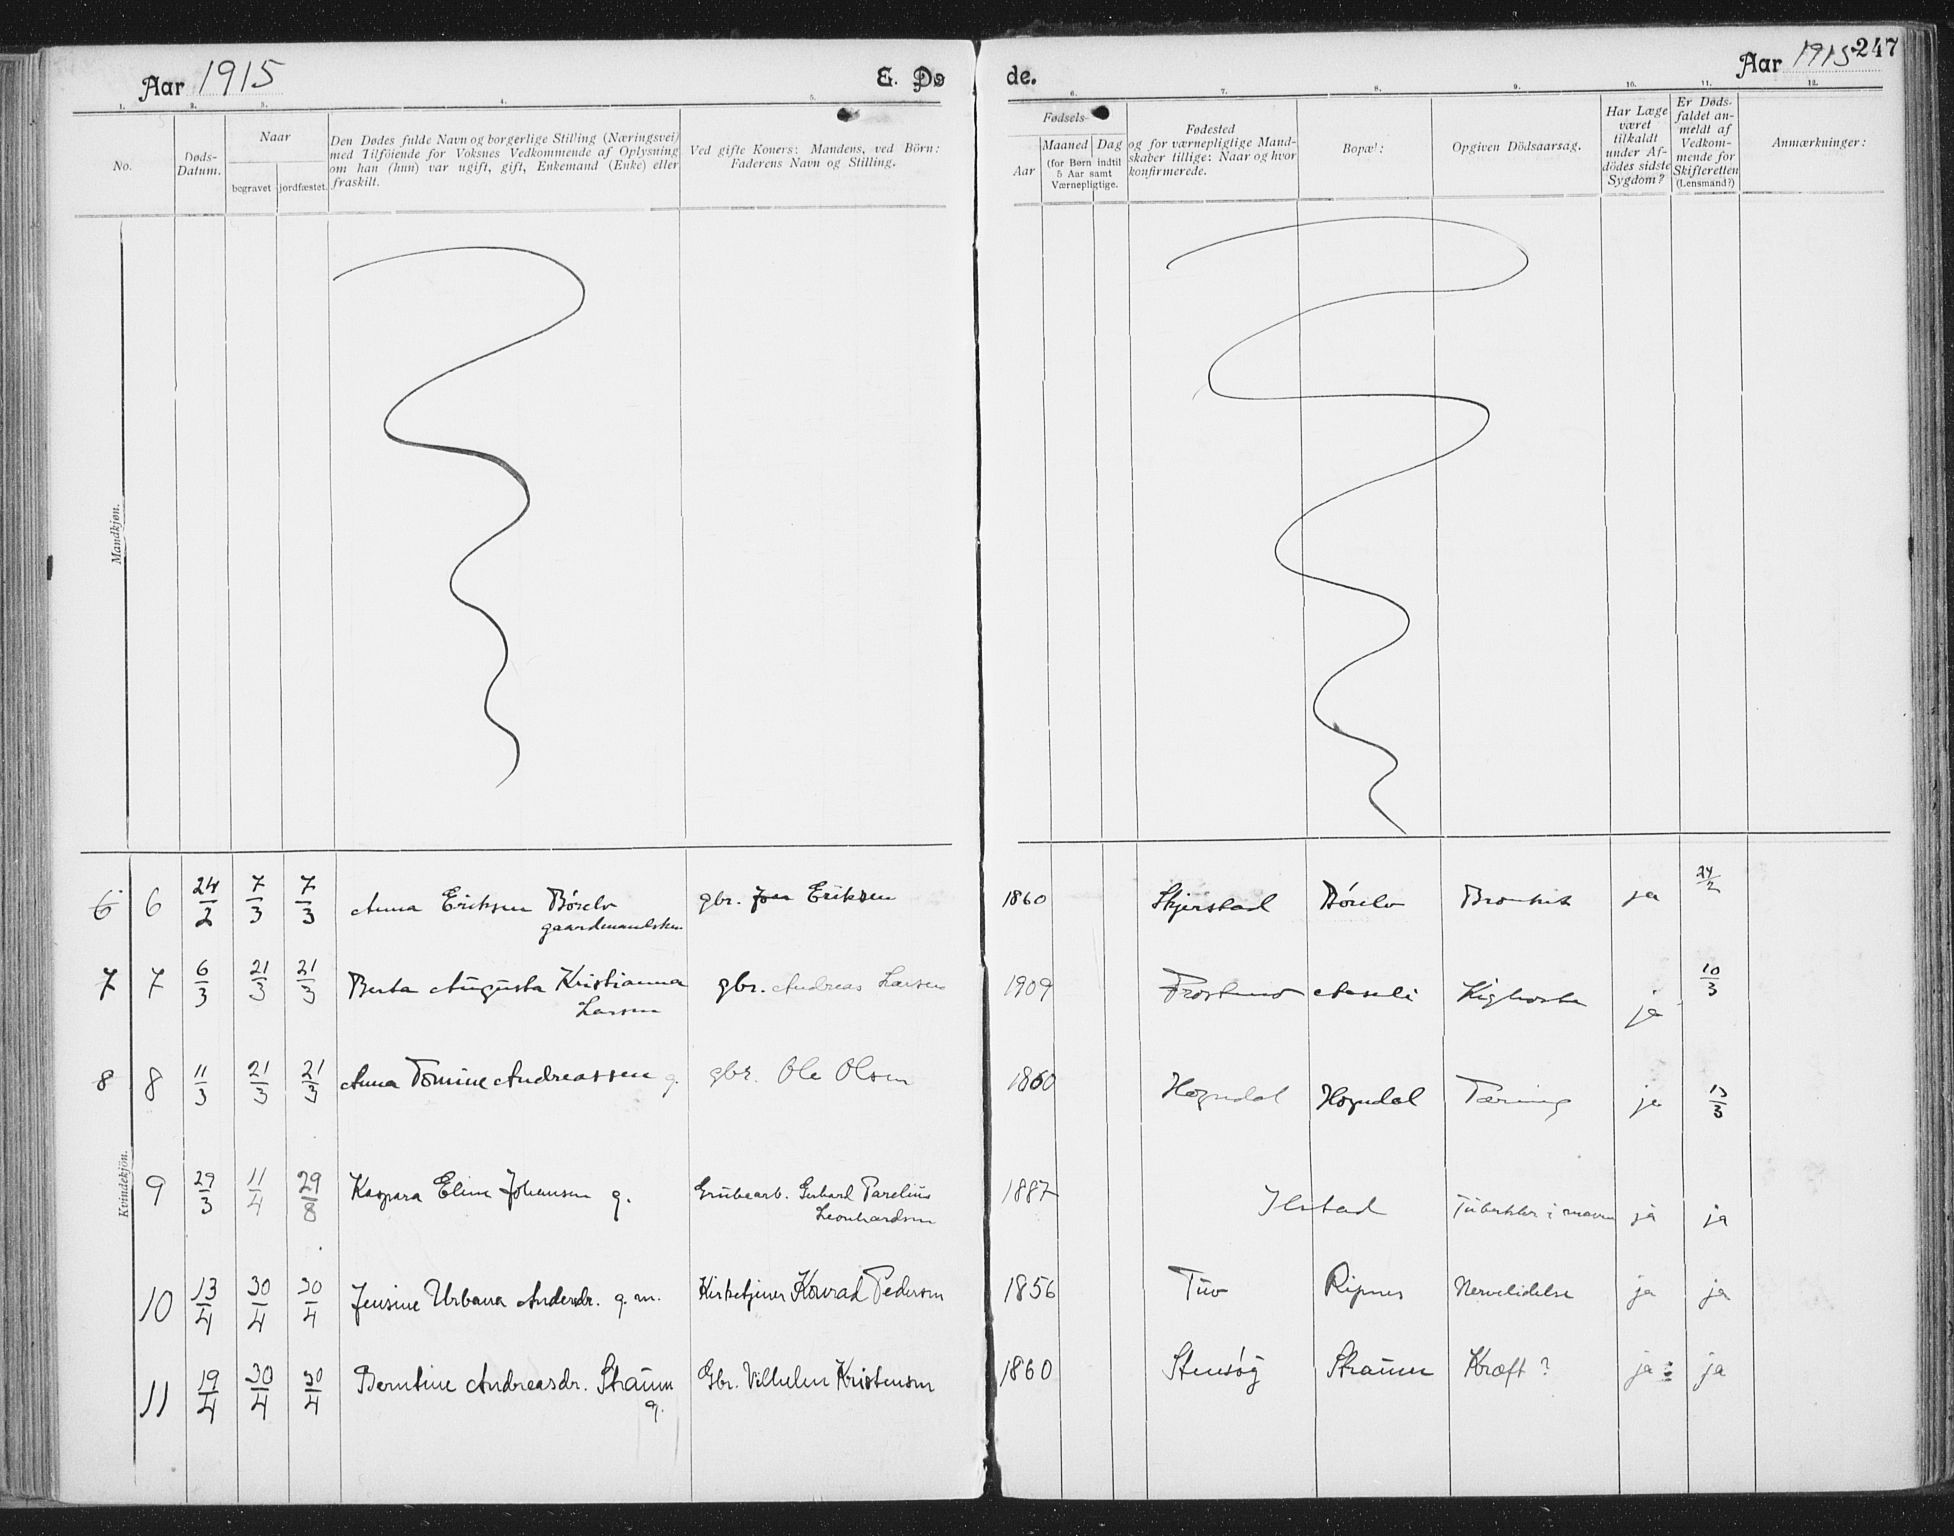 Aar 1915
E. Dø
de.
Aar 1915
247
1. 2. 3. 4. 5. 6. 7. 8. 9. 10. 11. 12.
No.
Døds-
Datum.
Naar
begravet
jordfæstet.
Den Dødes fulde Navn og borgerlige Stilling (Næringsvei)
med Tilföiende for Voksnes Vedkommende af Oplysning
om han (hun) var ugift, gift, Enkemand (Enke) eller
fraskilt.
Ved gifte Koners: Mandens, ved Börn:
Faderens Navn og Stilling.
Fødsels-
Aar
Maaned
Dag
(for Børn indtil
5 Aar samt
Værnepligtige.
Fødested
og for værnepligtige Mand-
skaber tillige: Naar og hvor
konfirmerede.
Bopæl:
Opgiven Dödsaarsag.
Har Læge
været
tilkaldt
under Af-
dödes sidste
Sygdom?
Er Døds-
faldet an-
meldt af
Vedkom-
mende for
Skifteretten
(Lensmand?)
Anmærkninger:
Mandkjøn.
Kvindekjön.
6 6 24/2 7/3 7/3 Anna Eriksen Börelv gbr. Eriksen 1860 Skjerstad Börelv ja 24/2
7 7 6/3 21/3 21/3 Berta Augusta Kristianna gbr. Andreas Larsen 1909 Kighoste ja 10/3
Larsen
8 8 11/3 21/3 21/3 Anna Tomine Andreassen g. gbr. Ole Olsen 1860 Hogndal Hogndal Tæring ja 13/3
9 29/3 11/4 29/8 Kaspara Eline Johansen g. Grubearb. Gerhard Parelius 1887 Ilstad Tuberkler i maven ja ja
Leonhardsen
10 13/4 30/4 30/4 Jensine Urbana Andersdr. g. m. Kirketjener Konrad Pedersen 1856 Tuv Ripnes Nervelidelse ja ja
11 19/4 30/4 30/4 Berntine Andreasdr. Straum Gbr. Vilhelm Kristensen 1860 Stensög Straum Kræft? ja ja
g.